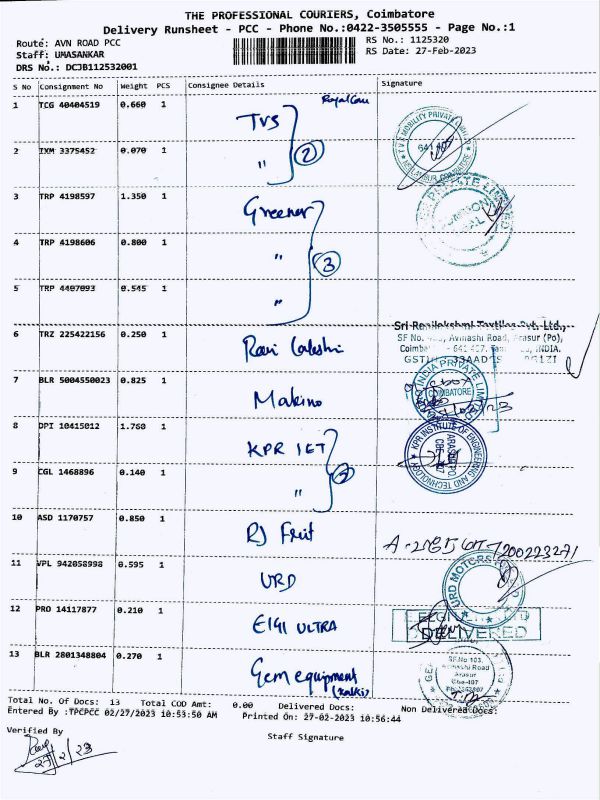 THE PROFESSIONAL COURIERS, Coimbatore
Delivery Runsheet - PCC - Phone No.:0422-3505555 - Page No.:1
Route: AVN ROAD PCC RS No.: 1125320
Staff: UMASANKAR RS Date: 27-Feb-2023
DRS No.: DCJB112532001
S No Consignment No Weight PCS Consignee Details Signature
1 TCG 40404519 0.660 1 TVS
2 IXM 3375452 0.070 1 " 2
3 TRP 4198597 1.350 1 Greener
4 TRP 4198606 0.800 1 " 3
5 TRP 4407093 0.545 1 "
Sri Ranilakshmi Textiles Pvt. Ltd.,
SF No. Avinashi Road, Arasur (Po),
6 TRZ 225422156 0.250 1 Coimb - 641 407. INDIA.
7 BLR 5004550023 0.825 1 Makino
INDIA PRIVATE LIMITED
COIMBATORE
8 DPI 10415012 1.760 1 KPR IET
KPR INSTITUTE OF ENGINEERING AND TECHNOLOGY
9 CGL 1468896 0.140 1 "
10 ASD 1170757 0.850 1
11 VPL 942058998 0.595 1 URD
URD MOTORS
12 PRO 14117877 0.210 1 ELGI ULTRA
DELIVERED
13 BLR 2801348804 0.270 1 Gem equipment
SF.No 103,
Avinashi Road
Arasur
Cbe-407
Total No. Of Docs: 13 Total COD Amt: 0.00 Delivered Docs: Non Delivered Docs:
Entered By :TPCPCC 02/27/2023 10:53:50 AM Printed On: 27-02-2023 10:56:44
Verified By Staff Signature
27/2/23